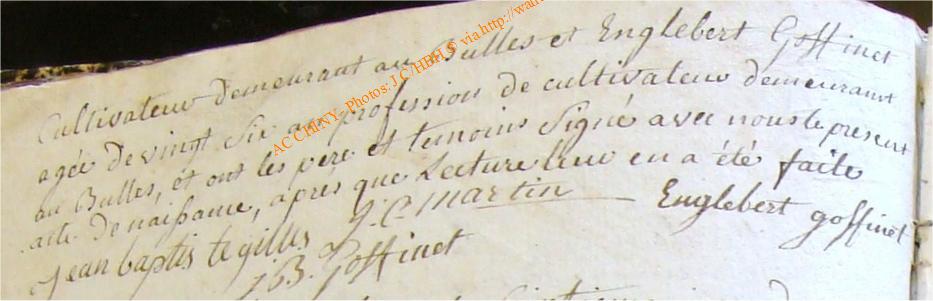 Cultivateur demeurant au Bulles et Englebert Goffinet
agée de vingt six ans profession de cultivateur demeurant
au Bulles, et ont les père et temoins Signé avec nous le present
acte de naissance, après que Lecture leur en a été faite
Jean baptis te gilles J. C. Martin Englebert goffinet
J. B. Goffinet
ACCHINY - Photos: J.C/HBH © via http://wan